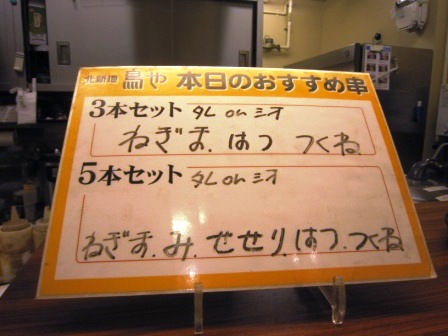 北新地 鳥や 本日のおすすめ串
3本セット タレ or シオ
ねぎま. はつ つくね
5本セット タレ or シオ
ねぎま. み. せせり. はつ. つくね